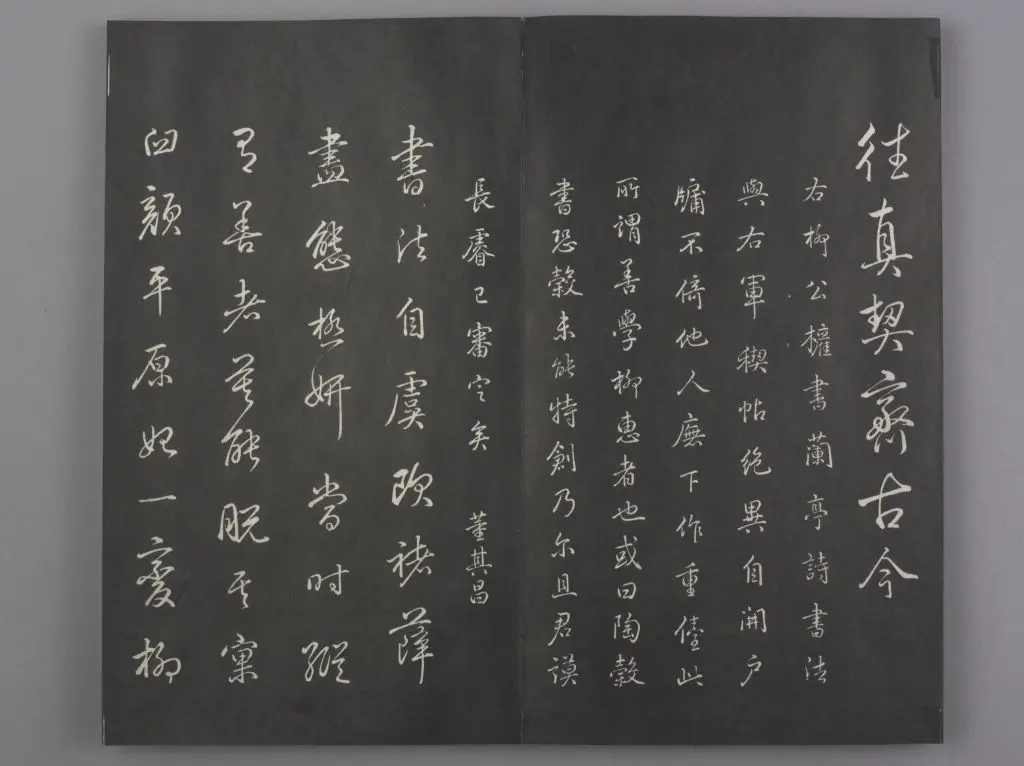 往真契齋古今
右柳公權書蘭亭詩書法
與右軍稧帖絕異自開户
牖不倚他人廡下作重儓此
所謂善學柳惠者也或曰陶穀
書恐穀未能特創乃尔且君謨
長睿已審定矣 董其昌
書法自虞歐褚薛
盡態極妍當時縱
有善者莫能脫其窠
臼顏平原始一變柳